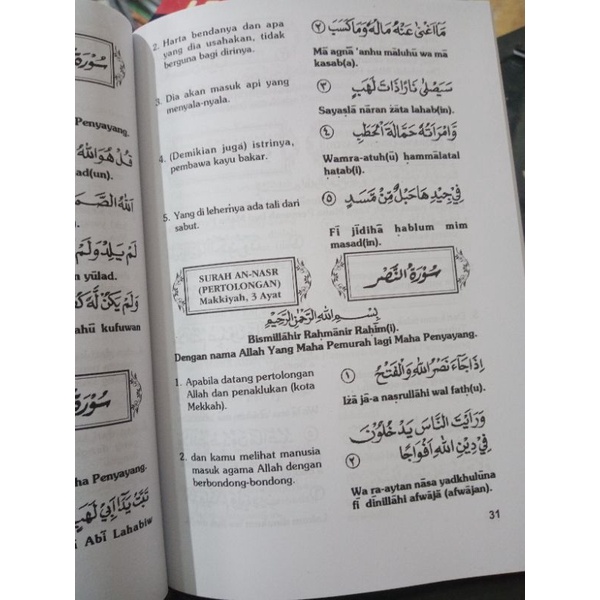 سورة
Penyayang.
قل هو الله
ad(un).
الله الصم
لم يلد ولم
n yūlad.
ولم يكن له
ahū kufuwan
سورة
ha Penyayang.
تبت يدا ابي لهب
Abī Lahabiw
2. Harta bendanya dan apa
yang dia usahakan, tidak
berguna bagi dirinya.
مَا اَغْنٰى عَنْهُ مَالُهٗ وَمَا كَسَبَ ٢
Mā agnā 'anhu māluhū wa mā
kasab(a).
3. Dia akan masuk api yang
menyala-nyala.
سَيَصْلٰى نَارًا ذَاتَ لَهَبٍ ٣
Sayaṣlā nāran żāta lahab(in).
4. (Demikian juga) istrinya,
pembawa kayu bakar.
وَامْرَاَتُهٗ حَمَّالَةَ الْحَطَبِ ٤
Wamra-atuh(ū) ḥammālatal
ḥaṭab(i).
5. Yang di lehernya ada tali dari
sabut.
فِيْ جِيْدِهَا حَبْلٌ مِّنْ مَّسَدٍ ٥
Fī jīdihā ḥablum mim
masad(in).
SURAH AN-NASR
(PERTOLONGAN)
Makkiyah, 3 Ayat
سُوْرَةُ النَّصْرِ
بِسْمِ اللهِ الرَّحْمٰنِ الرَّحِيْمِ
Bismillāhir Raḥmānir Raḥīm(i).
Dengan nama Allah Yang Maha Pemurah lagi Maha Penyayang.
1. Apabila datang pertolongan
Allah dan penaklukan (kota
Mekkah).
اِذَا جَاۤءَ نَصْرُ اللهِ وَالْفَتْحُ ١
Iżā jā-a naṣrullāhi wal fatḥ(u).
2. dan kamu melihat manusia
masuk agama Allah dengan
berbondong-bondong.
وَرَاَيْتَ النَّاسَ يَدْخُلُوْنَ
فِيْ دِيْنِ اللهِ اَفْوَاجًا ٢
Wa ra-aytan nāsa yadkhulūna
fī dīnillāhi afwājā (afwājan).
31